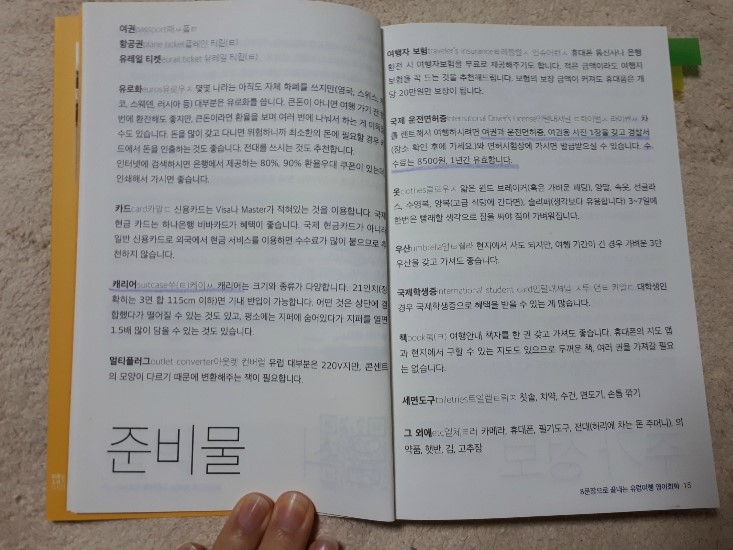 여권passport패ㅅ폴ㅌ
항공권plane ticket플레인 티킽(ㅌ)
유레일 티켓eurail ticket 유레일 티킽(ㅌ)
유로화euros유로우ㅈ 몇몇 나라는 아직도 자체 화폐를 쓰지만(영국, 스위스,
코, 스웨덴, 러시아 등) 대부분은 유로화를 씁니다. 큰돈이 아니면 여행 가기 전
번에 환전해도 좋지만, 큰돈이라면 환율을 보며 여러 번에 나눠서 하는 게 이
수도 있습니다. 돈을 많이 갖고 다니면 위험하니까 최소한의 돈에 필요할 경우
드에서 돈을 인출하는 것도 좋습니다. 전대를 쓰시는 것도 추천합니다.
인터넷에 검색하시면 은행에서 제공하는 80%, 90% 환율우대 쿠폰이 있는데
인쇄해서 가시면 좋습니다.
카드card카알ㄷ 신용카드는 Visa나 Master가 적혀있는 것을 이용합니다. 국제
현금 카드는 하나은행 비바카드가 혜택이 좋습니다. 국제 현금카드가 아니라
일반 신용카드로 외국에서 현금 서비스를 이용하면 수수료가 많이 붙으므로 추
천하지 않습니다.
캐리어suitcase쑽(ㅌ)케이ㅆ 캐리어는 크기와 종류가 다양합니다. 21인치(정
확히는 3면 합 115cm 이하)면 기내 반입이 가능합니다. 어떤 것은 상단에 결
합했다가 떨어질 수 있는 것도 있고, 평소에는 지퍼에 숨어있다가 지퍼를 열면
1.5배 많이 담을 수 있는 것도 있습니다.
멀티플러그outlet converter아웃렛 컨버럴 유럽 대부분은 220V지만, 콘센트
의 모양이 다르기 때문에 변환해주는 잭이 필요합니다.
준비물
여행자 보험traveler's insurance 휴대폰 통신사나 은행
환전 시 여행자보험을 무료로 제공해주기도 합니다. 적은 금액이라도 여행자
보험을 꼭 드는 것을 추천해드립니다. 보험의 보장 금액이 커져도 휴대폰은 개
당 20만원만 보상이 됩니다.
국제 운전면허증international Driver's license 차
를 렌트해서 여행하시려면 여권과 운전면허증, 여권용 사진 1장을 갖고 경찰서
(장소 확인 후에 가세요.)와 면허시험장에 가시면 발급받으실 수 있습니다. 수
수료는 8500원, 1년간 유효합니다.
옷clothes클로우ㅈ 얇은 윈드 브레이커(혹은 가벼운 패딩), 양말, 속옷, 선글라
스, 수영복, 양복(고급 식당에 간다면), 슬리퍼(생각보다 유용합니다) 3~7일에
한번은 빨래할 생각으로 짐을 싸야 짐이 가벼워집니다.
우산umbrella엄ㅂ렐라 현지에서 사도 되지만, 여행 기간이 긴 경우 가벼운 3단
우산을 갖고 가셔도 좋습니다.
국제학생증international student card인털내셔널 ㅅ투던ㅌ 카알ㄷ 대학생인
경우 국제학생증으로 혜택을 받을 수 있는 게 많습니다.
책book북(ㅋ) 여행안내 책자를 한 권 갖고 가셔도 좋습니다. 휴대폰의 지도 앱
과 현지에서 구할 수 있는 지도도 있으므로 두꺼운 책, 여러 권을 가져갈 필요
는 없습니다.
세면도구toiletries토일릴ㅌ릭ㅈ 칫솔, 치약, 수건, 면도기, 손톱 깎기
그 외에etc엩쎄ㅌ러 카메라, 휴대폰, 필기도구, 전대(허리에 차는 돈 주머니), 의
약품, 햇반, 김, 고추장
8문장으로 끝내는 유럽여행 영어회화 15